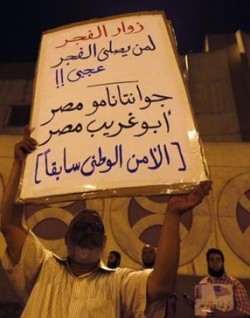 زوار الفجر
لمن يصلى الفجر
عجبى !!
جوانتانامو مصر
أبو غريب مصر
[الامن الوطنى سابقاً]